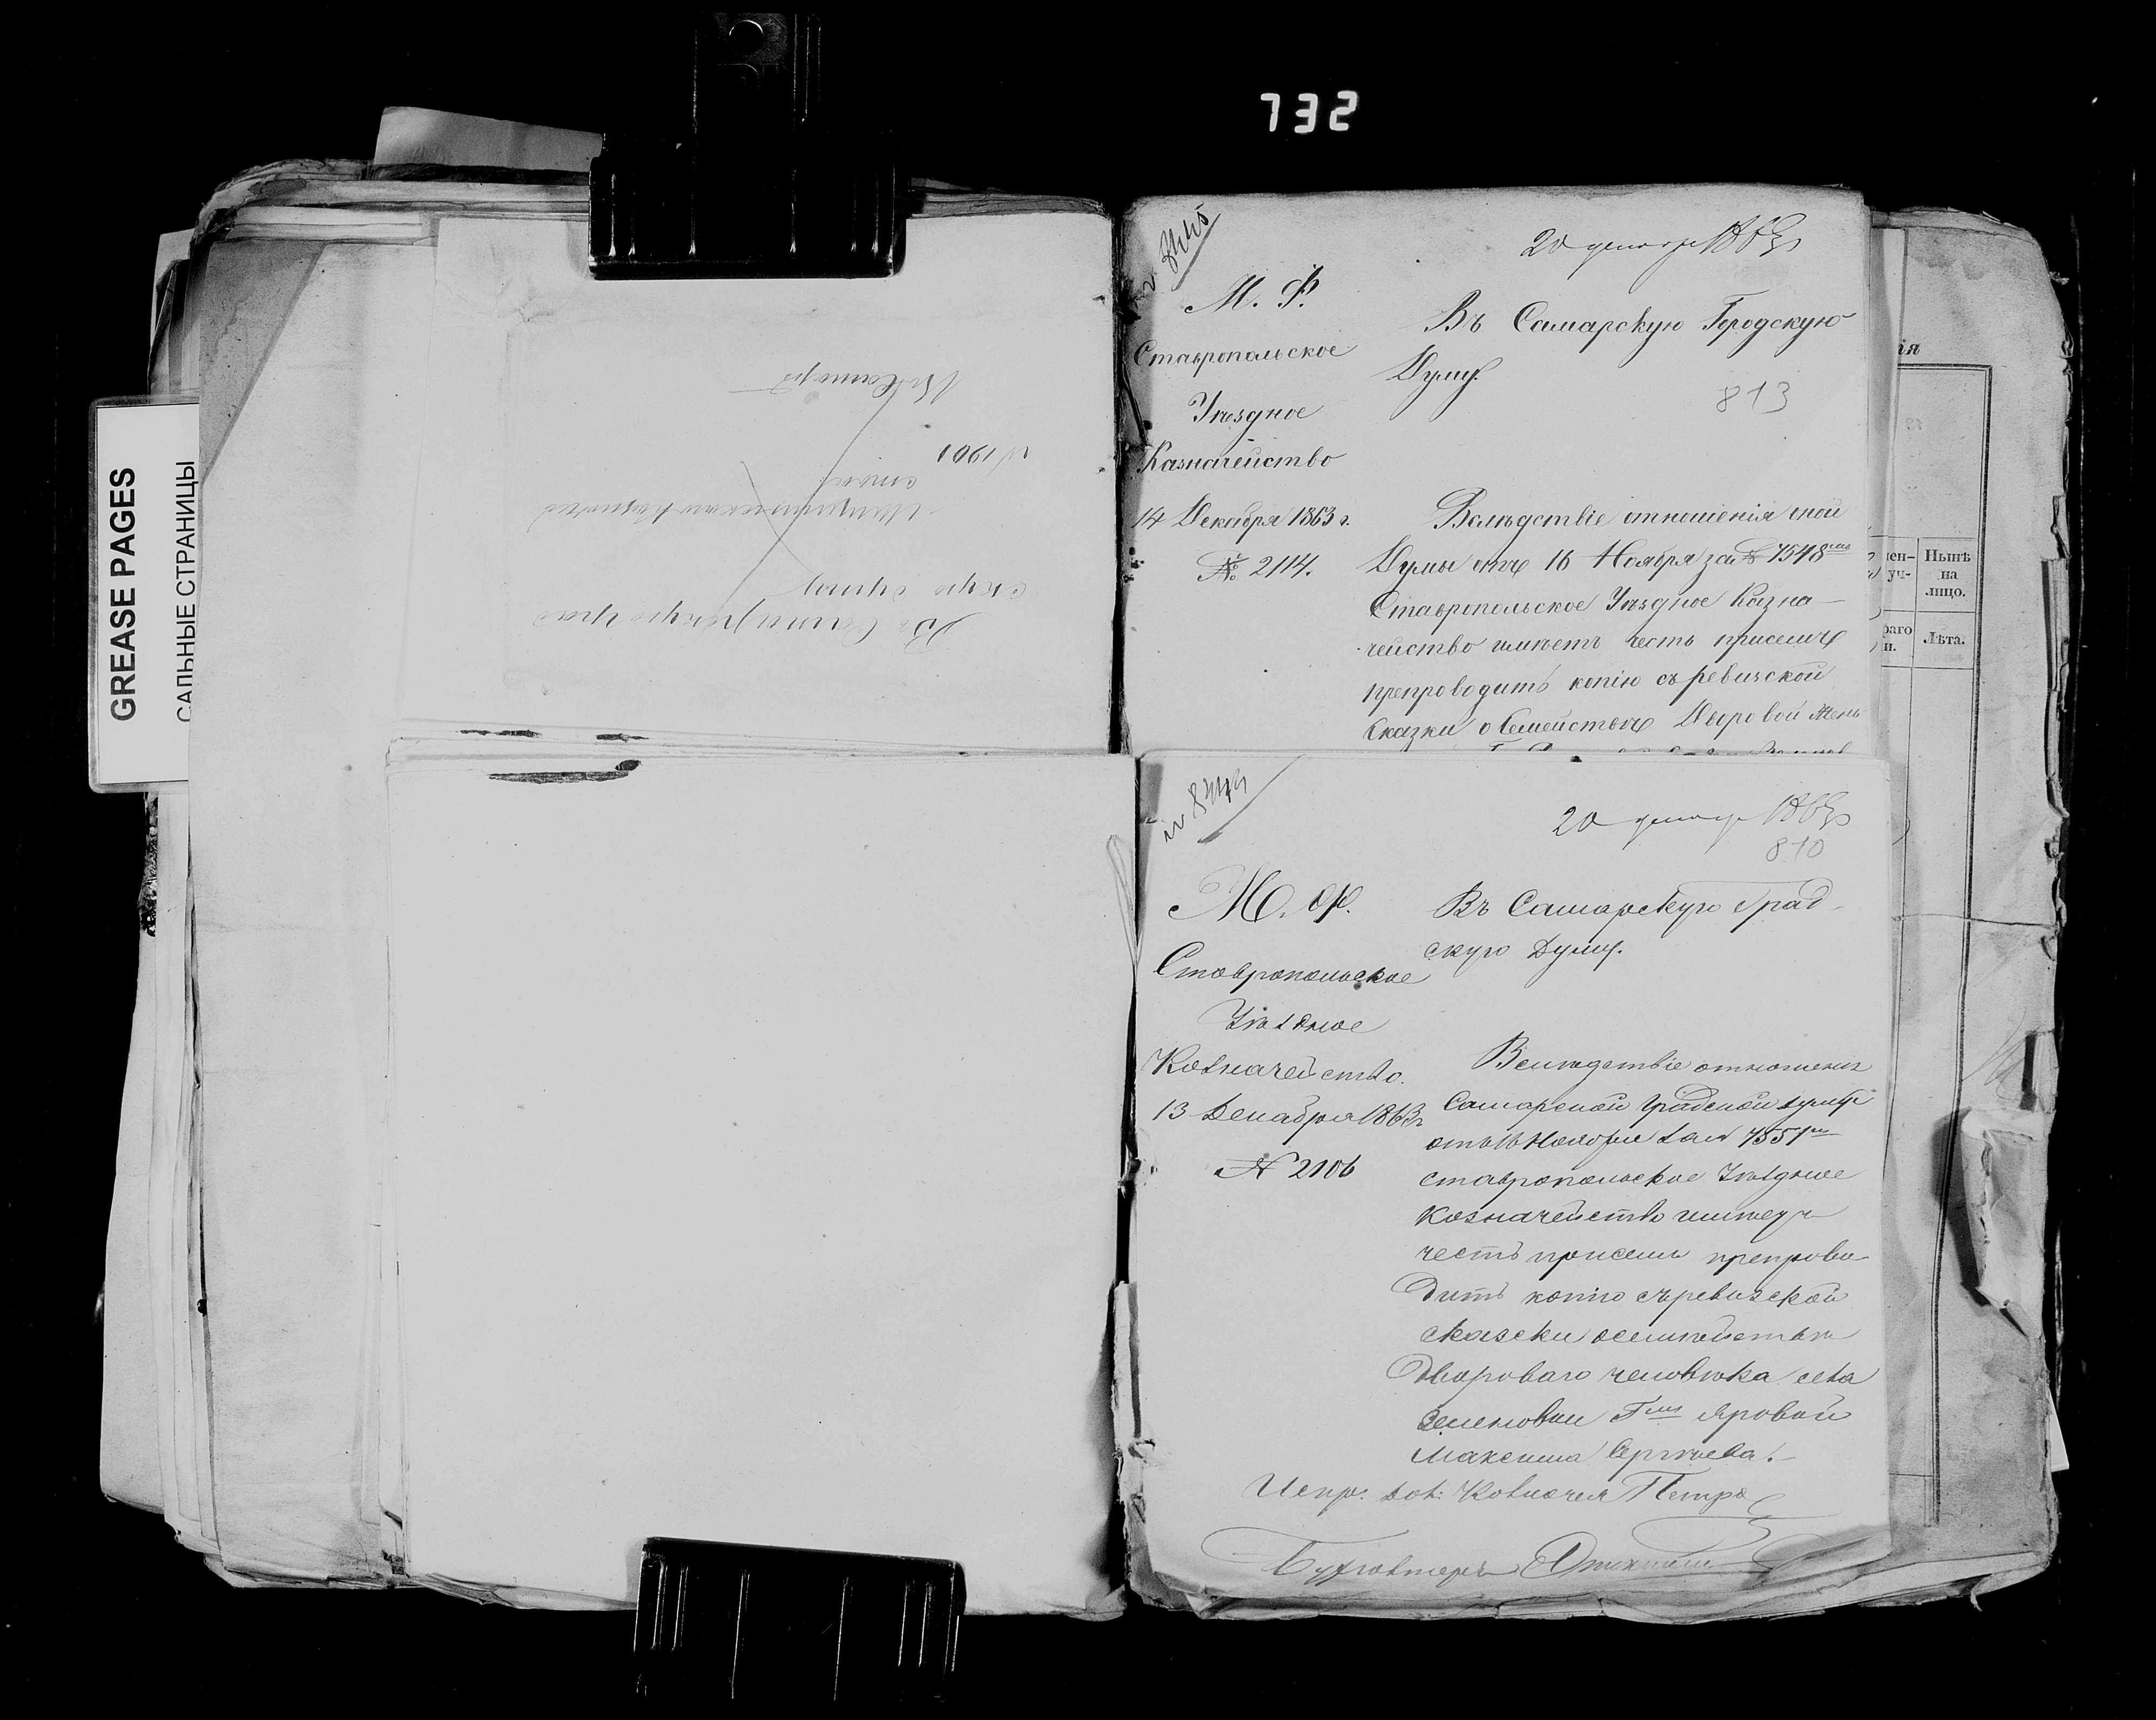 732
GREASE PAGES
САЛЬНЫЕ СТРАНИЦЫ
Въ Самарскую град
скую думу
N 1901
20 декабр 1863
М. Ф.
Ставропольское
Уѣздное
Казначейство
14 Декабря 1863 г.
№ 2114.
Въ Самарскую Городскую
Думу.
813
Вслѣдствіе отношенія оной
Думы отъ 16 Ноября за № 7548
Ставропольское Уѣздное Казна-
чейство имѣетъ честь присемъ
препроводить копію съ ревизской
Сказки о Семействѣ Дворовой Жен
20 декабр 1863
810
М. Ф.
Ставропольское
Уѣздное
Казначейство.
13 Декабря 1863 г
№ 2106
Въ Самарскую Град-
скую Думу.
Вслѣдствіе отношения
Самарской Градской думы
отъ 16 Ноября за № 7551
ставропольское Уѣздное
Казначейство имѣетъ
честь присемъ препрово-
дить копію съ ревизской
сказски о семѣйствѣ
Двороваго человѣка села
Зеленовки Яровой
Максима Сергѣева.
Испр: дол: Казначея Петро
Бухгалтеръ
ія
Нынѣ
на
лицо.
Лѣта.
ен-
уч-
раго
н.